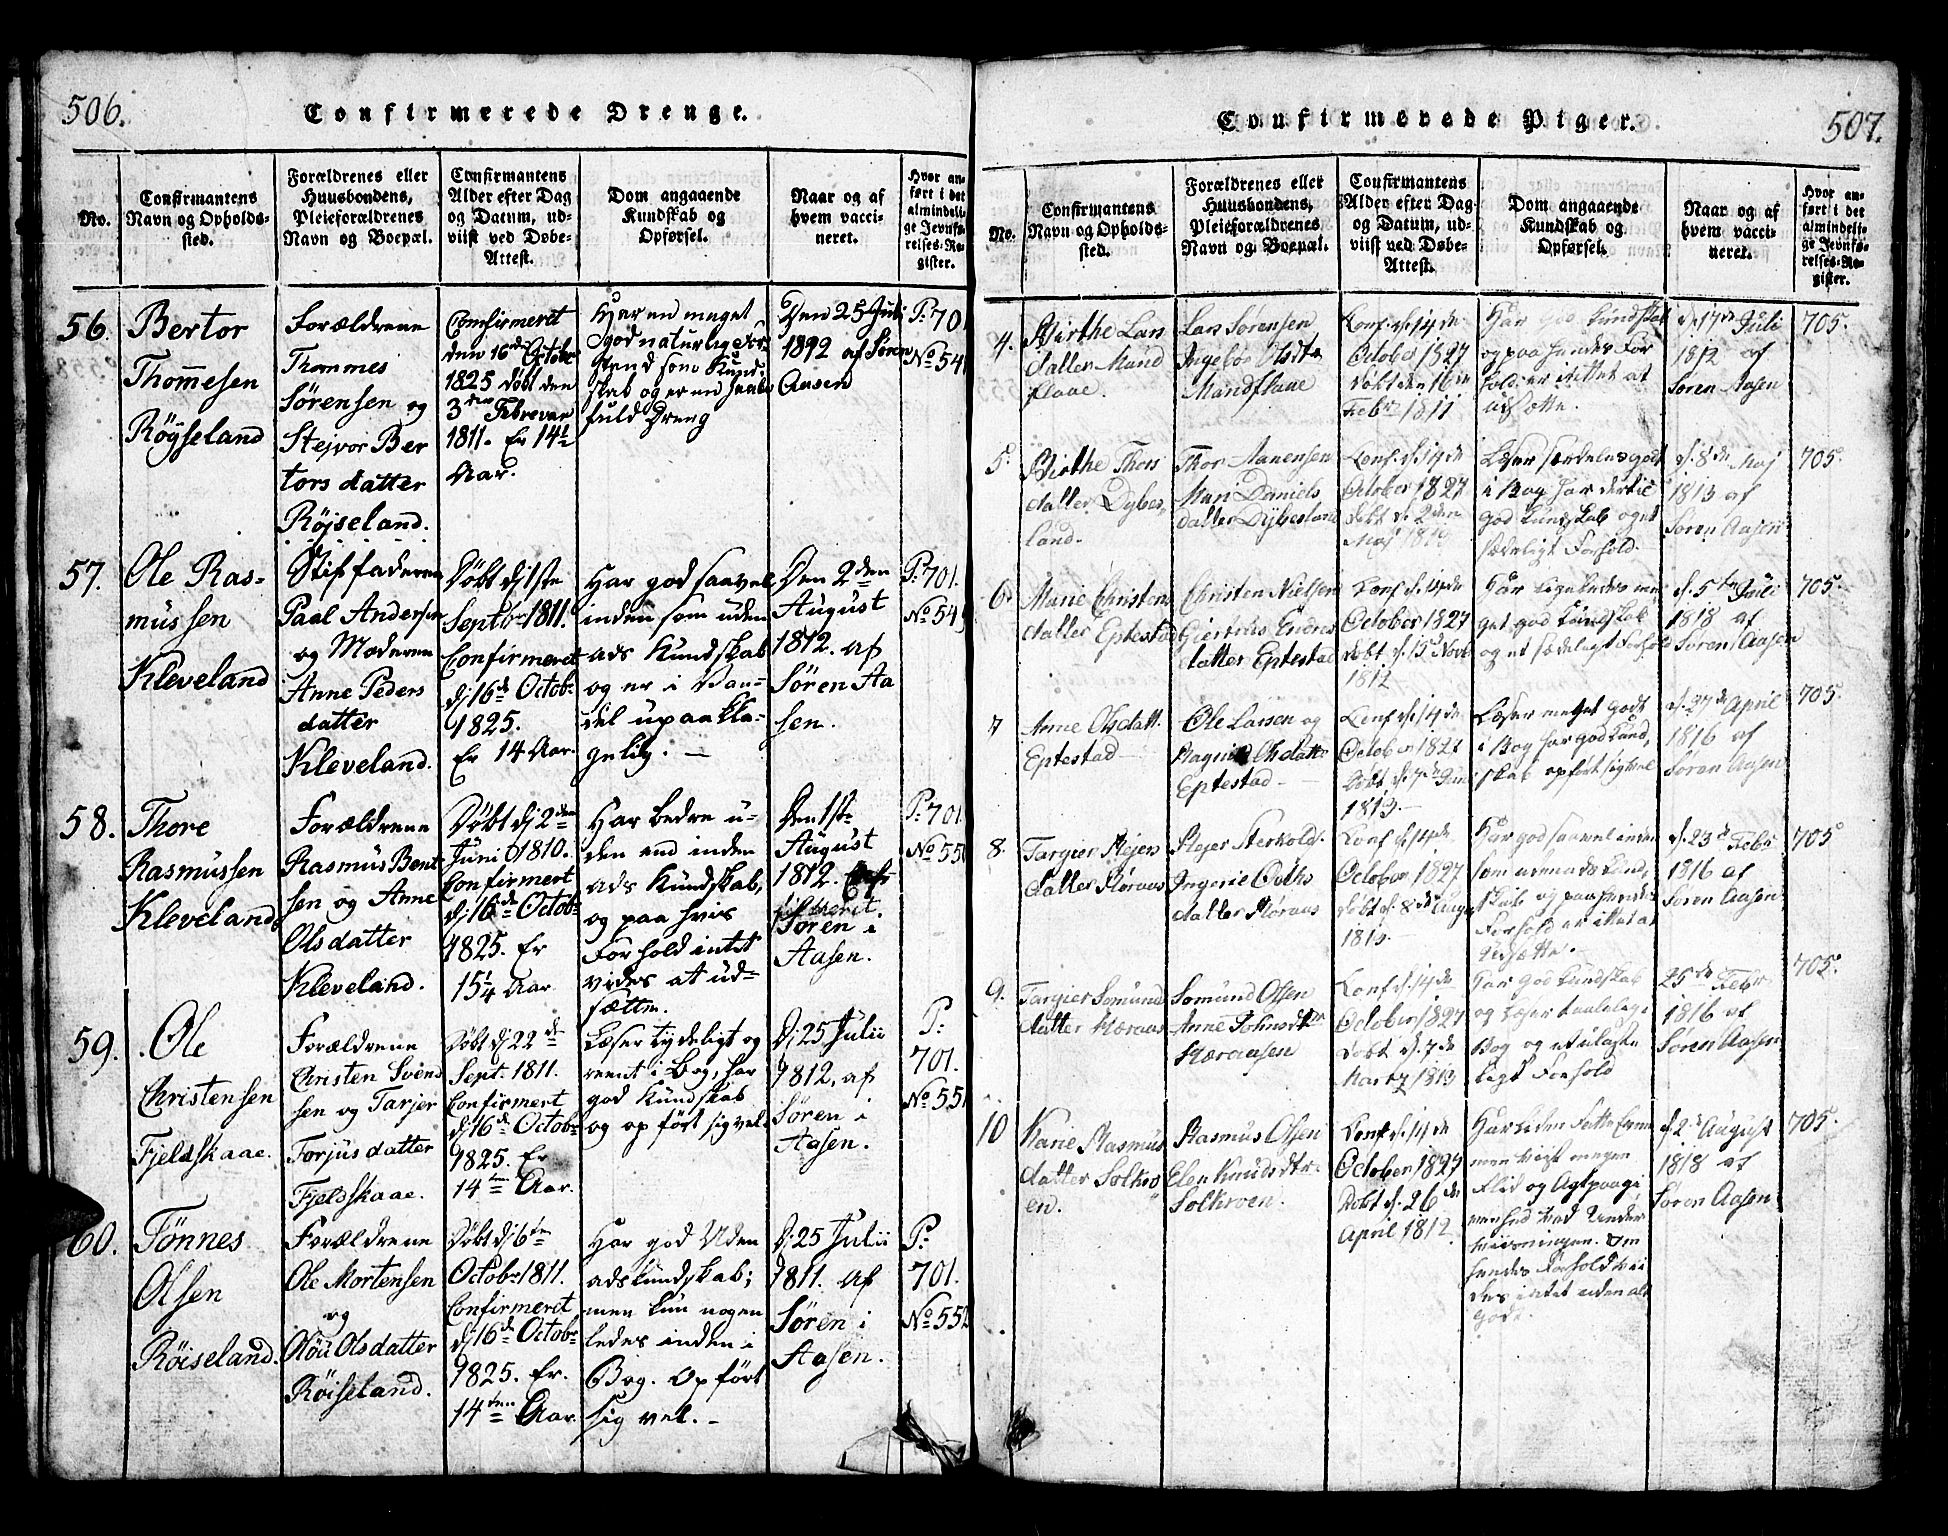 506.
Confirmerede Drenge.
No.
Confirmantens
Navn og Opholds-
sted.
Forældrenes eller
Huusbondens,
Pleieforældrenes
Navn og Boepæl.
Confirmantens
Alder efter Dag
og Datum, ud-
viist ved Døbe-
Attest.
Dom angaaende
Kundskab og
Opførsel.
Naar og af
hvem vacci-
neret.
Hvor an-
ført i det
almindeli-
ge Jevnfø-
relses-Re-
gister.
56.
Bertor
Thommesen
Röyseland
Forældrene
Thommes
Sørensen og
Stejvor Ber
tors datter
Röjseland.
Confirmeret
den 16de Octobr
1825 Døbt den
3den Februar
1811. Er 14½
Aar.
Har en meget
god naturlig For
stand som Kund
skab og er en haab
fuld Dreng
Den 25 Juli
1812 af Søren
Aasen
P: 701
No 54
57.
Ole Ras-
mussen
Kleveland
Stiffaderen
Paal Anderser
og Moderen
Anne Peders
datter
Kleveland.
Døbt dj 1ste
Septbr 1811.
Confirmeret
dj 16de Octobr.
1825.
Er 14 Aar.
Har god saavel
inden som uden
ads Kundskab
og er i Van-
del upaakla-
gelig. —
Den 2den
August
1812. af
Søren Aa
sen.
P: 701.
No 549
58.
Thore
Rasmussen
Kleveland
Forældrene
Rasmus Bent
sen og Anne
Olsdatter
Kleveland.
Døbt dj 2den
Juni 1810.
Confirmert
dj 16de Octobr
1825. Er
15¼ Aar
Har bedre u-
den end inden
ads Kundskab,
og paa hvis
Forhold intet
vides at ud-
sætte.
Den 1ste
August
1812. af
Søren i
Aasen.
P: 701
No 550
59.
Ole
Christensen
Fjeldskaae.
Forældrene
Christen Svend
sen og Tarjer
Torjusdatter
Fjeldskaae.
Døbt dj 22de
Sept. 1811.
Confirmert
dj 16de Octobr
1825. Er
14ten Aar.
Læser tydeligt og
reent i Bog, har
god Kundskab
og opført sig vel.
Dj 25 Julii
1812, af
Søren i
Aasen.
P:
701.
No 551
60.
Tönnes
Olsen
Röiseland.
Forældrene
Ole Mortensen
og
Olsdatter
Röiseland.
Døbt dj 6te
Octobr 1811.
Confirmeret
dj 16de Octobr
1825. Er.
14ten Aar.
Har god Uden
adskundskab;
men kun nogen
ledes inden i
Bog. Opført
sig vel. -
Dj 25 Julii
1811. af
Søren i
Aasen.
P:
701.
No 552
507.
Confirmerede Piger.
No.
Confirmantens
Navn og Opholds-
sted.
Forældrenes eller
Huusbondens,
Pleieforældrenes
Navn og Boepæl.
Confirmantens
Alder efter Dag
og Datum, ud-
viist ved Døbe-
Attest.
Dom angaaende
Kundskab og
Opførsel.
Naar og af
hvem vacci-
neret.
Hvor an-
ført i det
almindeli-
ge Jevnfø-
relses-Re-
gister.
4.
Birthe Lars
datter Mand
flaae.
Lars Sørensen
Ingebor Olsdtr
Mandflaae
Conf. d. 14de
October 1827
Døbt den 16de
Febr 1811
Har god Kundskab
og paa hendes For
hold er intet at
udsætte.
d. 17de Juli
1812 af
Søren Aasen
705.
5.
Birthe Thors
datter Dybes
land.
Thor Aanensen
Mari Daniels
datter Dybesland
Conf. d. 14de
October 1827
Døbt d. 2den
Maj 1813
Læser særdeles godt
i Bog har dertil
god Kundskab og et
sædeligt Forhold.
d. 8de Maj
1813 af
Søren Aasen
705.
6.
Marie Christens
datter Eptestad
Christen Nielsen
Giertrus Endres
datter Eptestad
Conf d. 14de
October 1827
Døbt d. 15de Novb
1812
Har ligeledes me
get god Kundskab
og et sædeligt Forhold
d. 5te Juli
1818 af
Søren Aasen
705.
7
Anne Olsdatt.
Eptestad —
Ole Larsen og
Olsdatt
Eptestad —
Conf. d. 14de
October 1827
Døbt d. 7de
1813. —
Læser meget godt
i Bog har god Kund,
skab opført sig vel
d. 27de April
1816 af
Søren Aasen
705.
8.
Targier Stejers
datter
Stejer
Ingerie
datter
Conf d. 14de
October 1827
Døbt d. 8de Augu
1813.
Har god saavel inden
som udenads Kund,
skab og paa hendes
Forhold er intet at
udsætte. -
d. 23de Febr
1816 af
Søren Aasen
705
9.
Targier Somund
datter
Somund Olsen
Anne Johnsdtr
Conf d. 14de
October 1827
Døbt d. 7de
Martz 1813
Har god Kundskab
og læser taalelig i
Bog og et ulaste
ligt Forhold
25de Febr
1816 af
Søren Aasen
705.
10
Karie Rasmus
datter Solkro
en.
Rasmus Olsen
Elen Knudsdtr.
Solkroen.
Conf d. 14de
October 1827
Døbt d. 26de
April 1812
men viist megen
Flid og Agtpaagi
venhed ved Under
viisningen. Om
hendes Forhold vii
des intet uden alt
godt.
d. 2de August
1818 af
Søren Aasen
705.